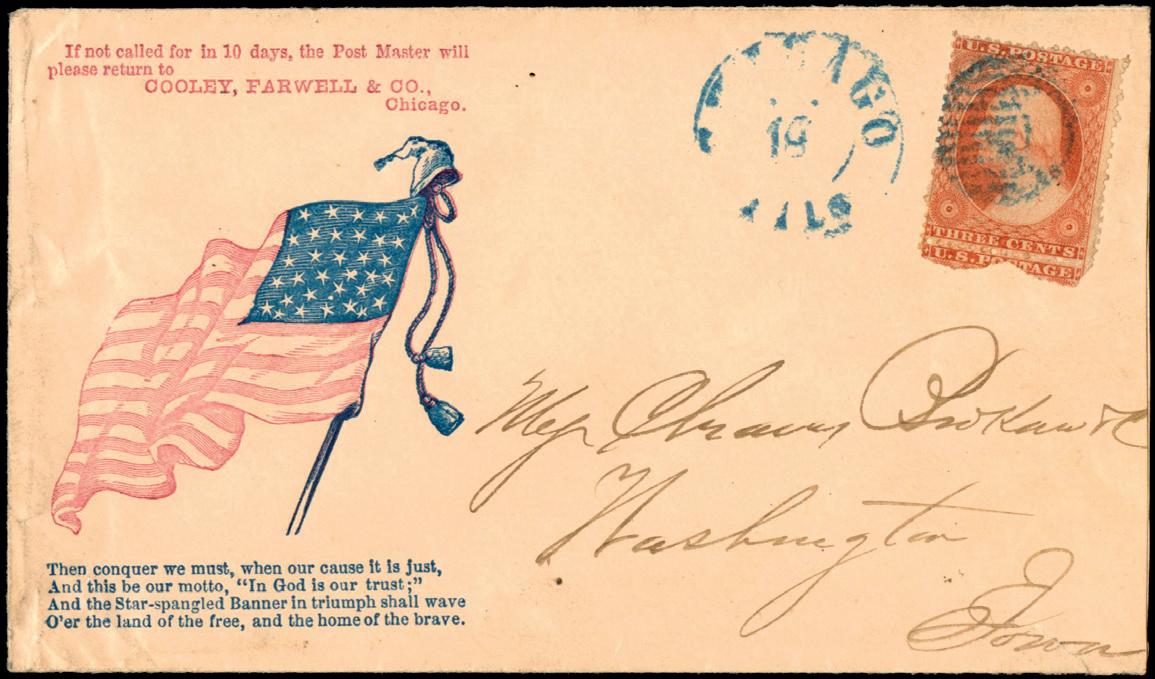 If not called for in 10 days, the Post Master will
please return to
COOLEY, FARWELL & CO.,
Chicago.
CHICAGO
19
U.S. POSTAGE
THREE CENTS
U.S. POSTAGE
Then conquer we must, when our cause it is just,
And this be our motto, "In God is our trust;"
And the Star-spangled Banner in triumph shall wave
O'er the land of the free, and the home of the brave.
Washington
Iowa